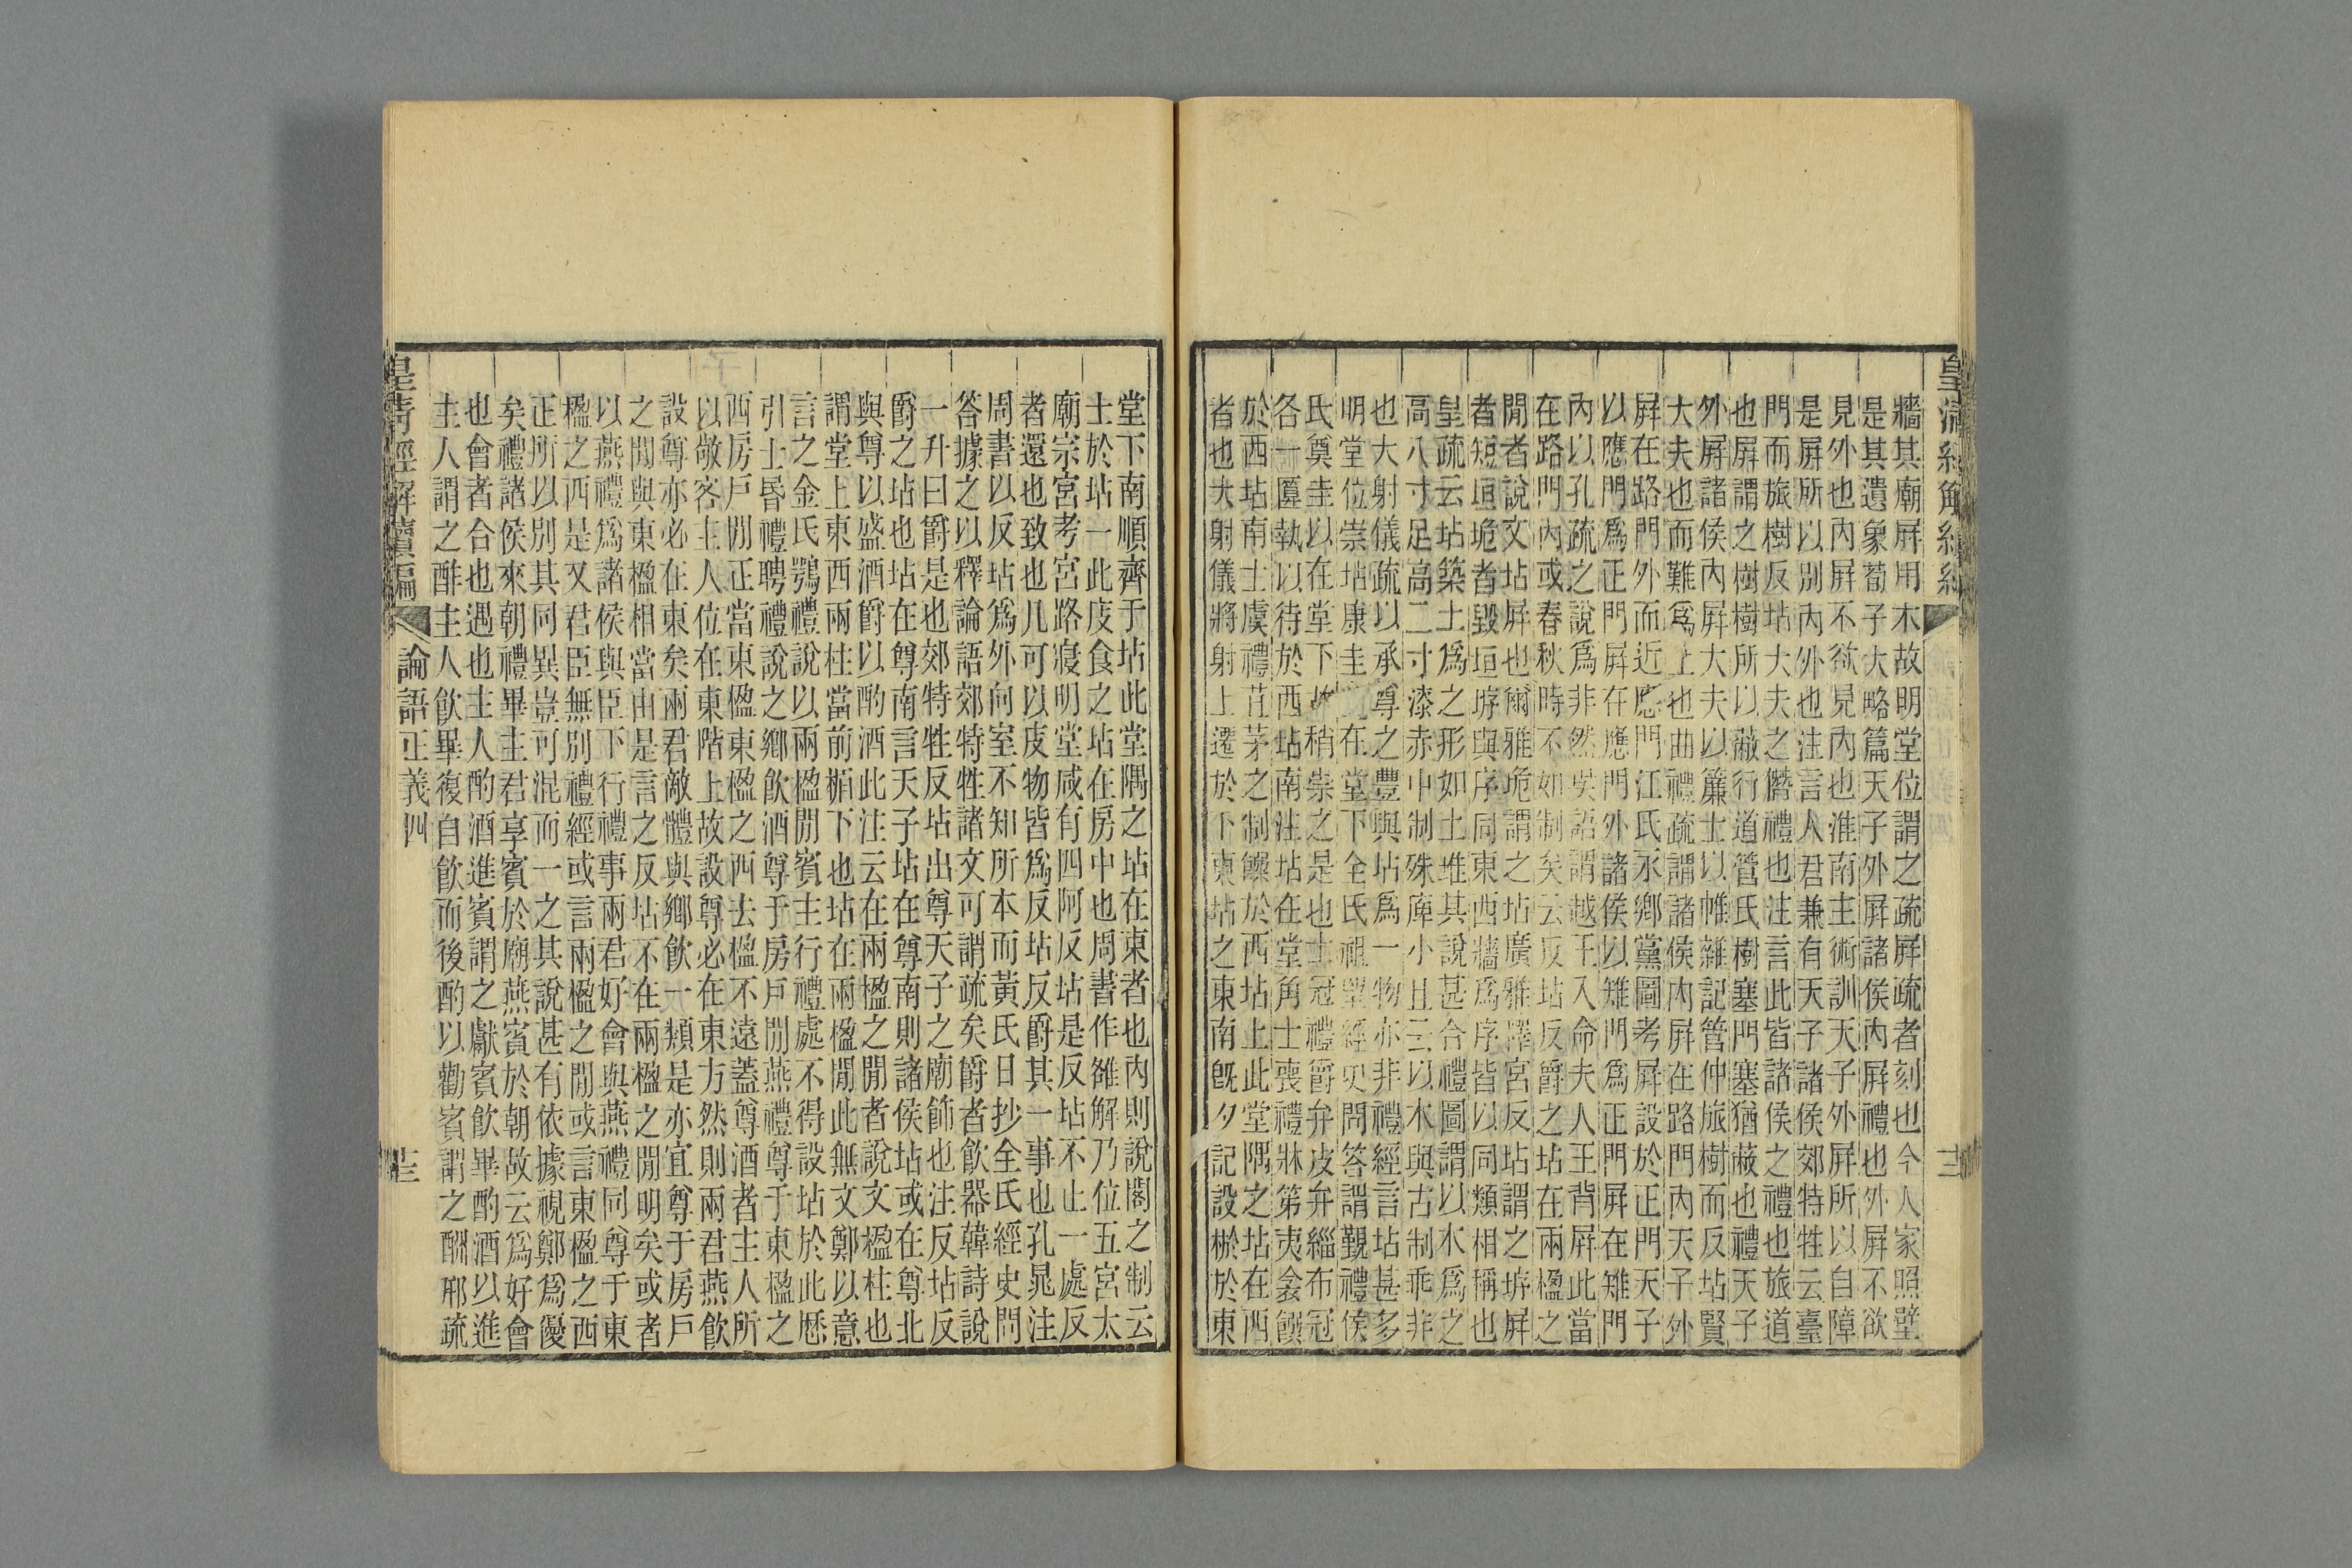 牆其廟屏用木故明堂位謂之疏屏疏者刻也今人家照壁
是其遺象荀子大略篇天子外屏諸侯內屏禮也外屏不欲
見外也內屏不欲見內也淮南主術訓天子外屏所以自障
是屏所以別內外也注言人君兼有天子諸侯郊特牲云臺
門而旅樹反坫大夫之僭禮也注言此皆諸侯之禮也旅道
也屏謂之樹樹所以蔽行道管氏樹塞門塞猶蔽也禮天子
外屏諸侯內屏大夫以簾士以帷雜記管仲旅樹而反坫賢
大夫也而難為上也曲禮疏謂諸侯內屏在路門內天子外
屏在路門外而近應門江氏永鄉黨圖考屏設於正門天子
以應門為正門屏在應門外諸侯以雉門為正門屏在雉門
內以孔疏之說為非然吳語謂越王入命夫人王背屏此當
在路門內或春秋時不如制矣云反坫反爵之坫在兩楹之
閒者說文坫屏也爾雅垝謂之坫廣雅釋宮反坫謂之垿屏
者短垣垝者毀垣垿與序同東西牆為序皆以同類相稱也
皇疏云坫築土為之形如土堆其說甚合禮圖謂以木為之
高八寸足高二寸漆赤中制殊庳小且云以木與古制乖非
也大射儀疏以承尊之豐與坫為一物亦非禮經言坫甚多
明堂位崇坫康圭在堂下全氏祖望經史問答謂覲禮侯
氏奠圭以在堂下故稍崇之是也士冠禮爵弁皮弁緇布冠
各一匴執以待於西坫南注坫在堂角士喪禮牀第夷衾饌
於西坫南士虞禮苴茅之制饌於西坫上此堂隅之坫在西
者也大射儀將射上遷於下東坫之東南旣夕記設棜於東
堂下南順齊于坫此堂隅之坫在東者也內則說閣之制云
士於坫一此庋食之坫在房中也周書作雒解乃位五宮太
廟宗宮考宮路寢明堂咸有四阿反坫是反坫不止一處反
者還也致也几可以庋物皆為反坫反爵其一事也孔晁注
周書以反坫為外向室不知所本而黃氏日抄全氏經史問
答據之以釋論語郊特牲諸文可謂疏矣爵者飲器韓詩說
一升曰爵是也郊特牲反坫出尊天子之廟飾也注反坫反
爵之坫也坫在尊南言天子坫在尊南則諸侯坫或在尊北
與尊以盛酒爵以酌酒此注云在兩楹之閒者說文楹柱也
謂堂上東西兩柱當前楣下也坫在兩楹閒此無文鄭以意
言之金氏鶚禮說以兩楹閒賓主行禮處不得設坫於此歷
引士昏禮聘禮說之鄉飲酒尊于房戶閒燕禮尊于東楹之
西房戶閒正當東楹東楹之西去楹不遠蓋尊酒者主人所
以敬客主人位在東階上故設尊必在東方然則兩君燕飲
設尊亦必在東矣兩君敵體與鄉飲一類是亦宜尊于房戶
之閒與東楹相當由是言之反坫不在兩楹之閒明矣或者
以燕禮為諸侯與臣下行禮事兩君好會與燕禮同尊于東
楹之西是又君臣無別禮經或言兩楹之閒或言東楹之西
正所以別其同異豈可混而一之其說甚有依據視鄭為優
矣禮諸侯來朝禮畢主君享賓於廟燕賓於朝故云為好會
也會者合也遇也主人酌酒進賓謂之獻賓飲畢酌酒以進
主人謂之酢主人飲畢復自飲而後酌以勸賓謂之酬邢疏
皇清經解續編
論語正義四